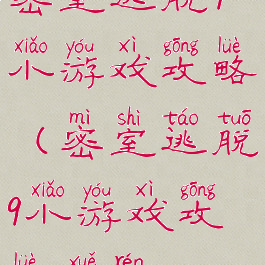 密室逃脱
xiǎo yóu xì gōng lüè
小游戏攻略
mì shì táo tuō
（密室逃脱
xiǎo yóu xì gōng
9小游戏攻
lüè xuě rén